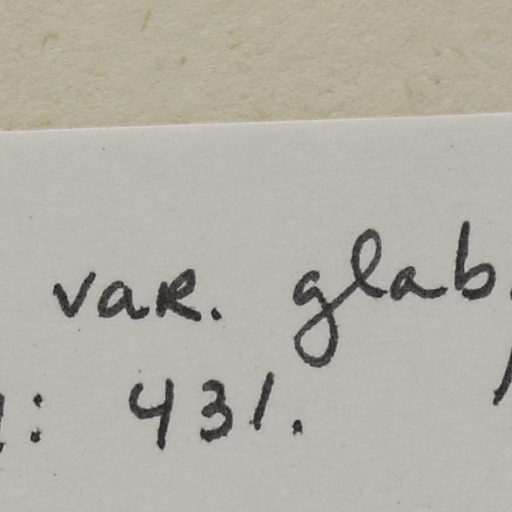 var. glab
: 431.